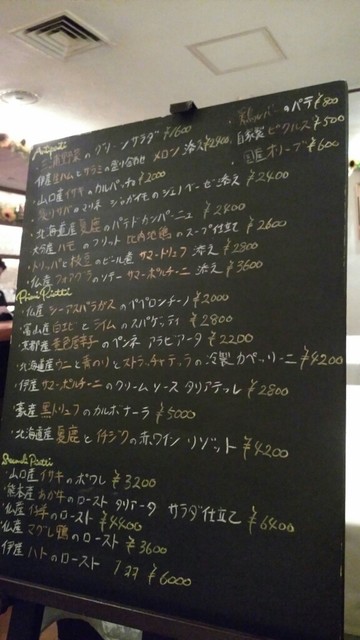 Antipasti
・三浦野菜のグリーンサラダ ¥1600
鶏レバーのパテ ¥800
自家製ピクルス ¥500
オリーブ ¥600
・伊産生ハムとサラミの盛り合わせ メロン添え ¥2400
・山口産イサキのカルパッチョ ¥2000
・炙りサバのマリネ ジャガイモのジェノベーゼ添え ¥2400
・北海道産夏鹿のパテドカンパーニュ ¥2400
・大分産ハモのフリット 比内地鶏のスープ仕立 ¥2600
・トリッパと枝豆のビール煮 サマートリュフ添え ¥2800
・仏産フォアグラのソテー サマーポルチーニ添え ¥3600
Primi Piatti
・仏産シーアスパラガスのペペロンチーノ ¥2000
・富山産白エビとライムのスパゲッティ ¥2800
・京都産賀茂茄子のペンネアラビアータ ¥2200
・北海道産ウニと青のりとストラッチャテッラの冷製カペッリーニ ¥4200
・伊産サマーポルチーニのクリームソースタリアテッレ ¥2800
・豪産黒トリュフのカルボナーラ ¥5000
・北海道産夏鹿とイチジクの赤ワインリゾット ¥4200
Secondi Piatti
・山口産イサキのポワレ ¥3200
・熊本産あか牛のロースト タリアータ サラダ仕立て ¥6400
・仏産仔羊のロースト ¥4400
・仏産マグレ鴨のロースト ¥3600
伊産ハトのロースト 1羽 ¥6000